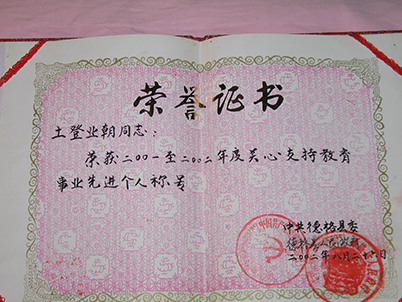 荣誉证书
土登业朝同志：
荣获二00一至二00二年度关心支持教育
事业先进个人称号
中共德格县委
德格县人民政府
二00二年八月二十六日